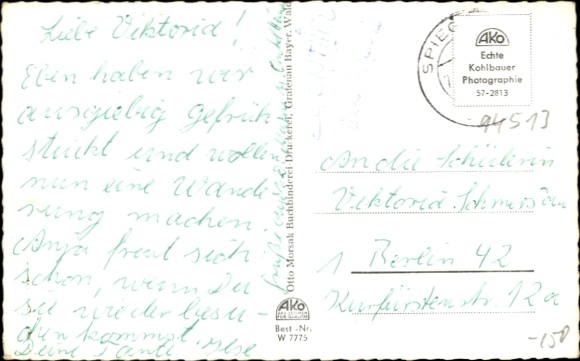 Liebe Viktoria!
Eben haben wir
ausgiebig gefrüh-
stückt und wollen
nun eine Wande
rung machen.
Anja freut sich
schon, wenn Du
sie wieder besu-
chen kommst.
Deine Tante
Otto Morsak Buchbinderei Druckerei, Grafenau Bayer. Wald
AKO
Best.-Nr.
W 7775
SPIEG
AKO
Echte
Kohlbauer
Photographie
57-2813
94513
An die Schülerin
Viktoria
1 Berlin 42
Kurfürstenstr. 12a
-150